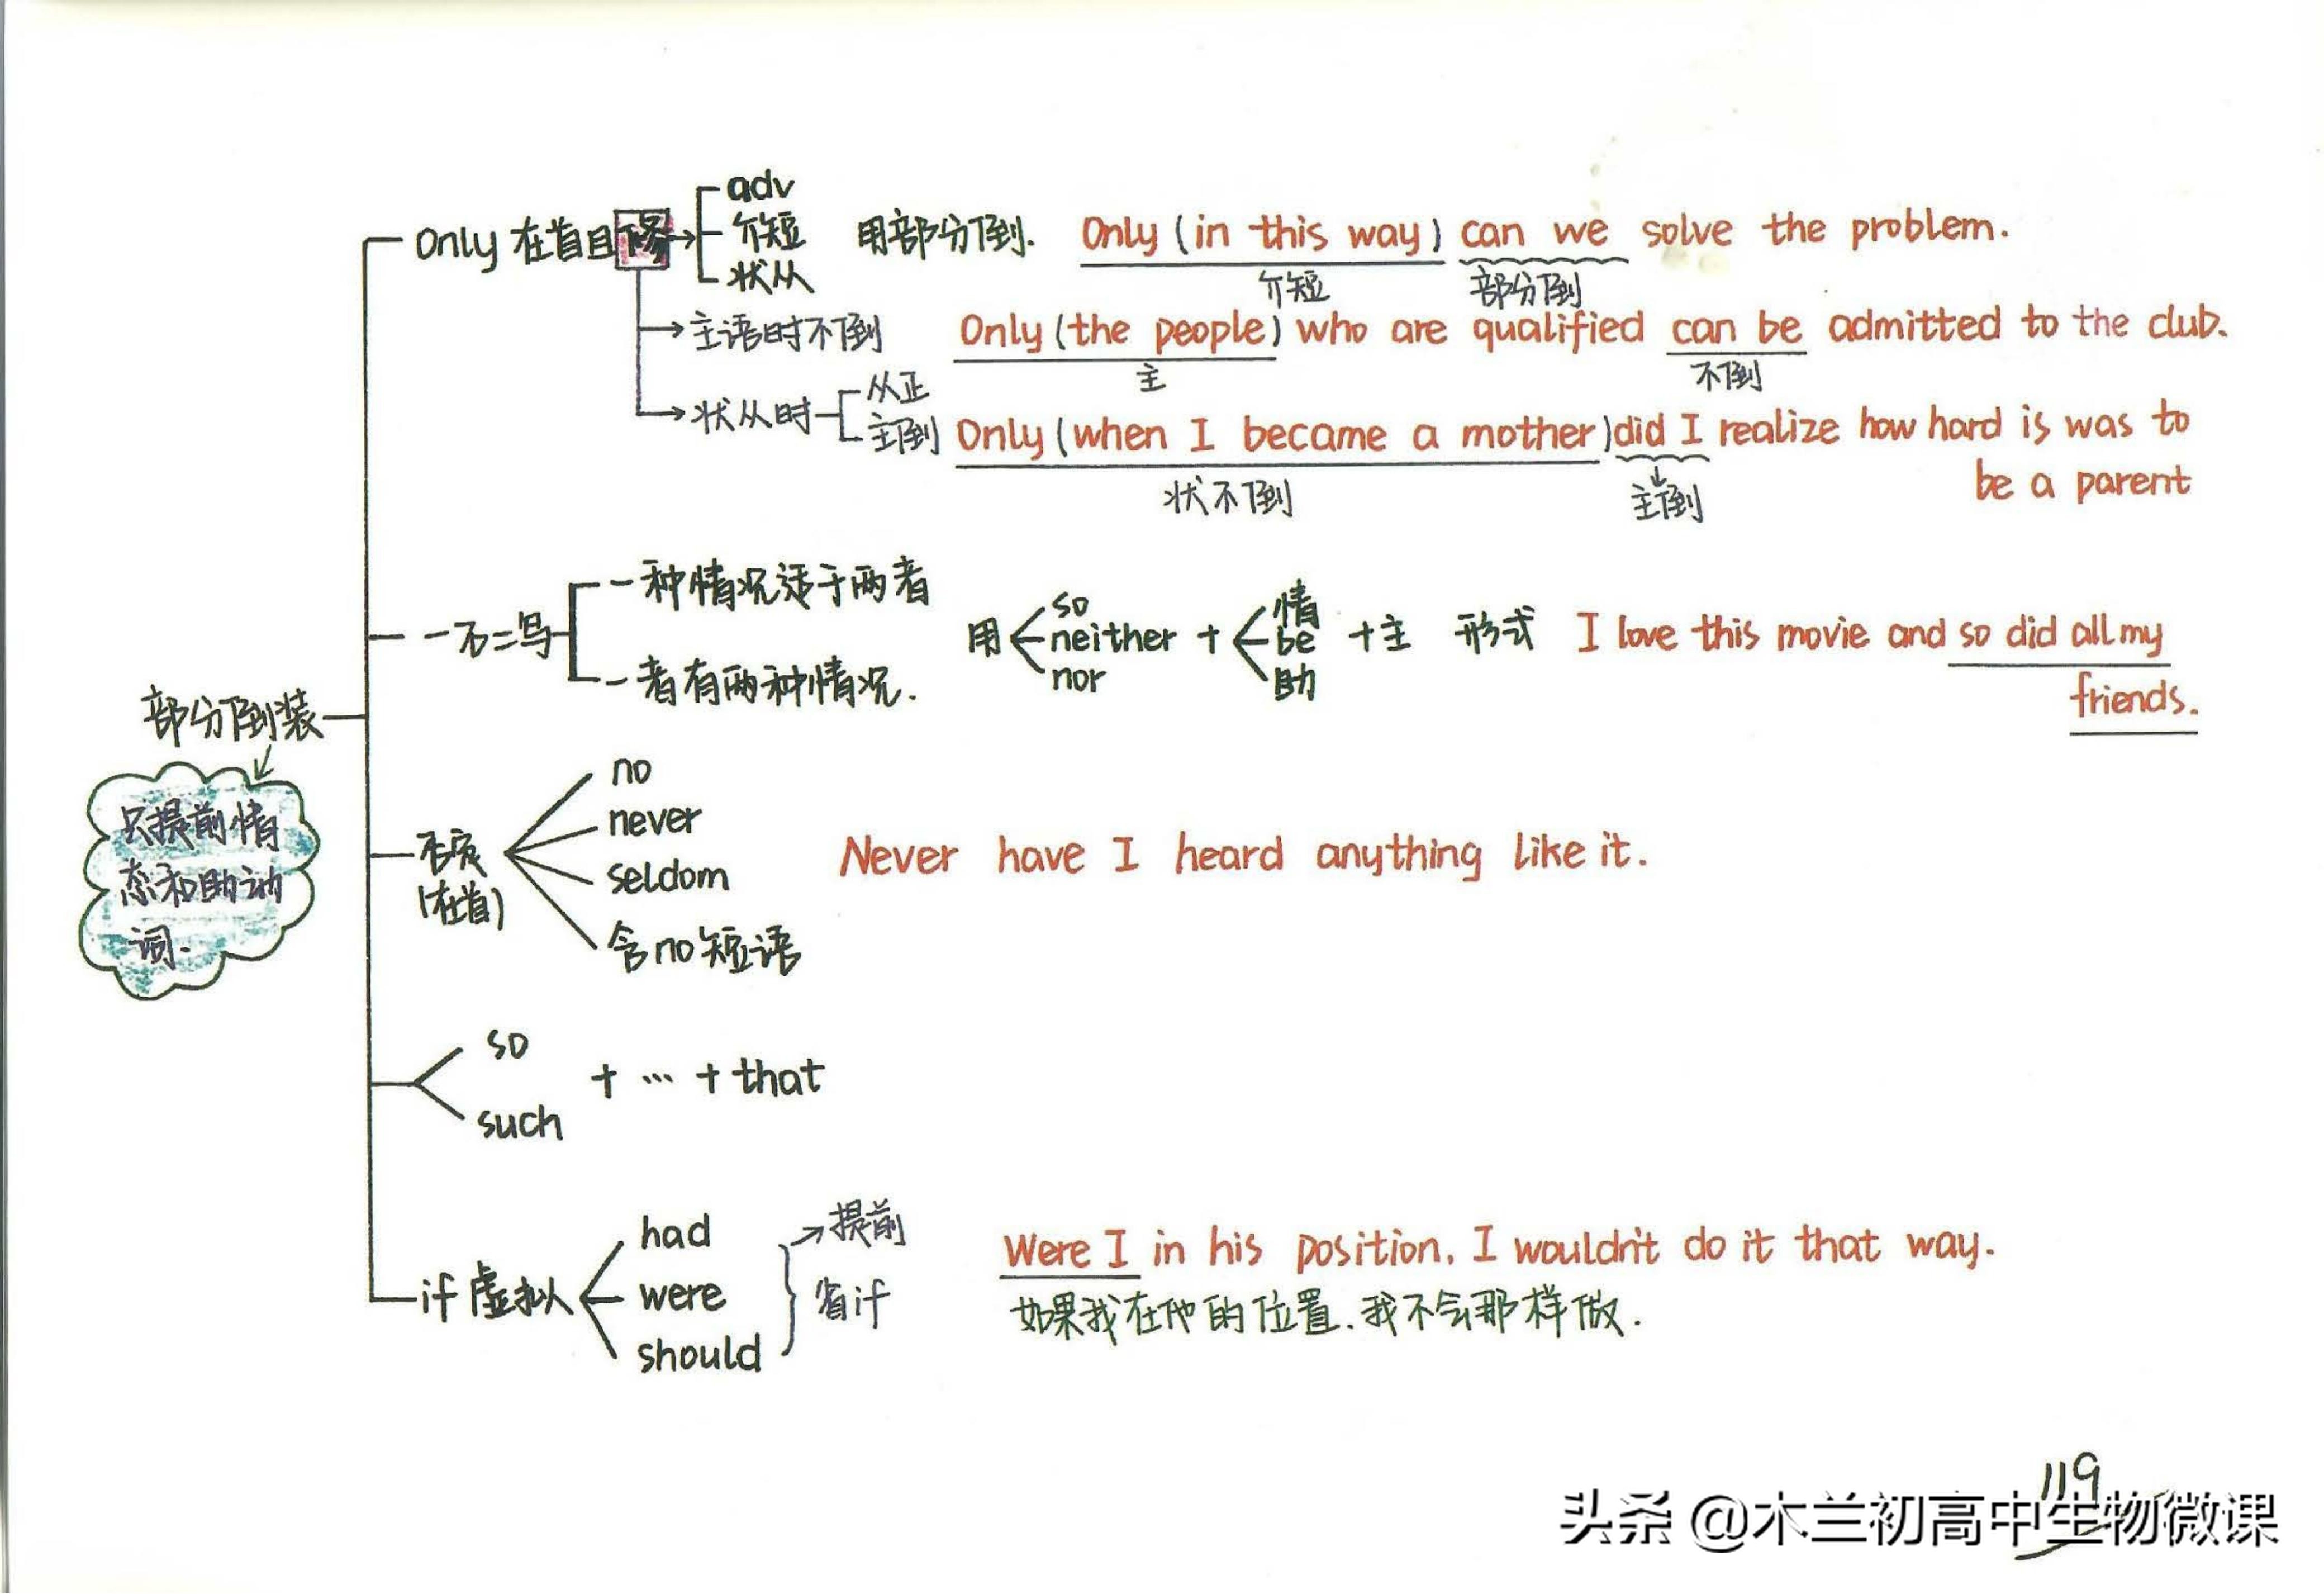 adv
Only 在首且修 介短 用部分倒. Only (in this way) can we solve the problem.
状从
介短 部分倒
主语时不倒 Only (the people) who are qualified can be admitted to the club.
主 不倒
状从时 从正
主倒 Only (when I became a mother) did I realize how hard is was to
be a parent
状不倒 主倒
一种情况适于两者
一不二写
一者有两种情况.
用 so neither nor + 情 be 助 +主 形式 I love this movie and so did all my
friends.
部分倒装
只提前情
态和助动
词.
否定
(在首)
no
never
seldom
含no短语
Never have I heard anything like it.
so
such
+ … + that
if 虚拟
had
were
should
提前
省if
Were I in his position, I wouldn't do it that way.
如果我在他的位置.我不会那样做.
119
头条 @木兰初高中生物微课